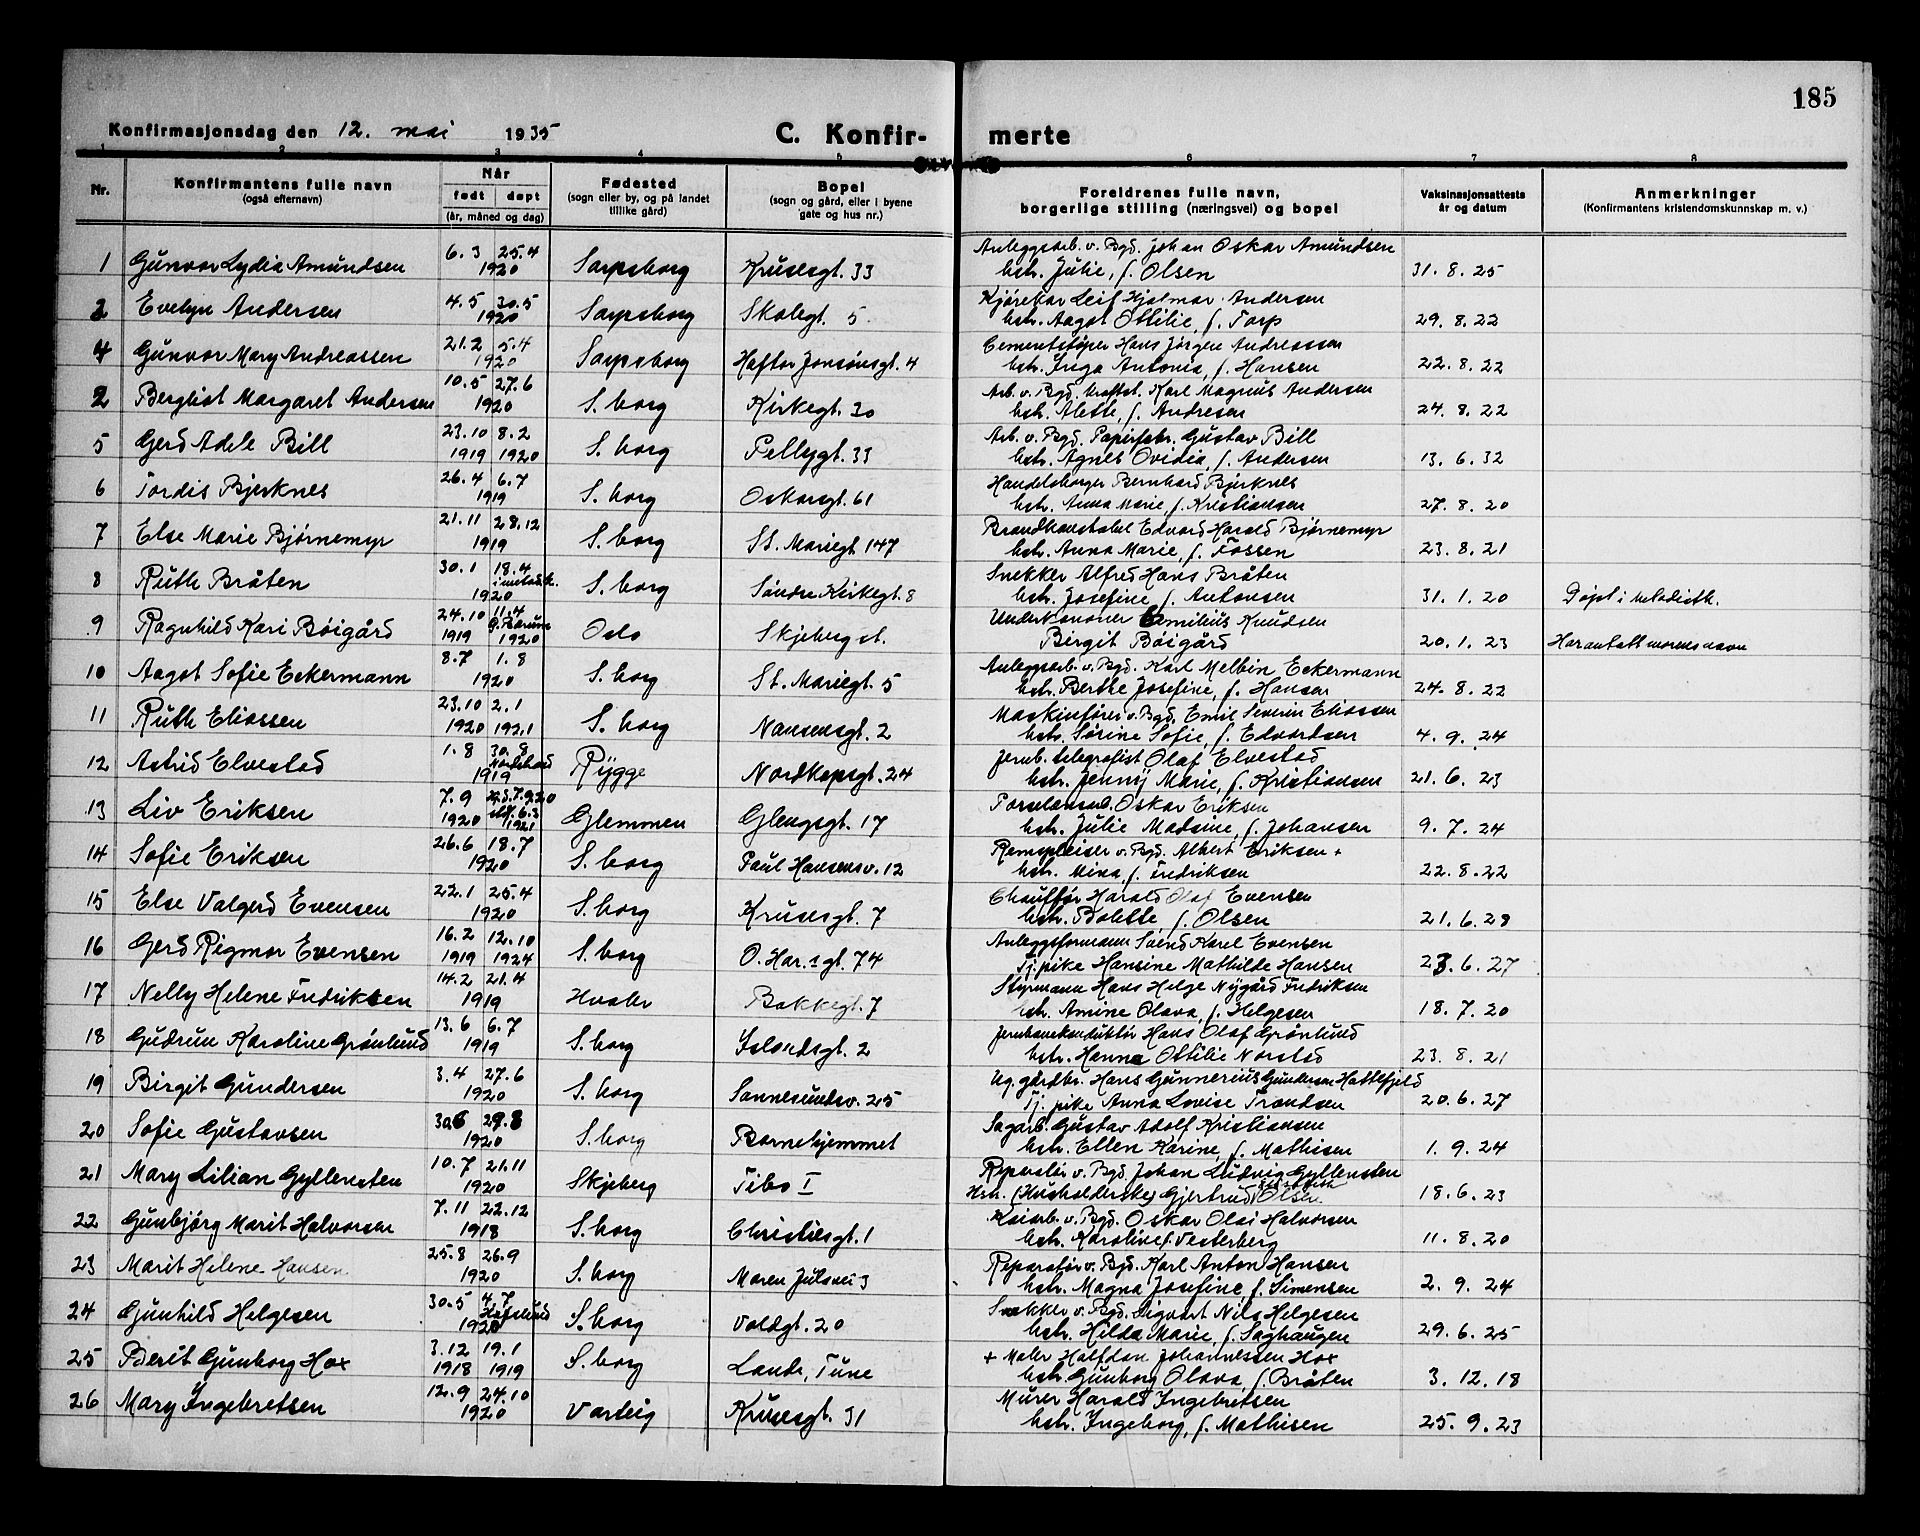 185
Konfirmasjonsdag den 12. mai 1935 C. Konfir- merte
1 2 3 4 5 6 7 8
Nr. Konfirmantens fulle navn (også efternavn) Når født døpt (år, måned og dag) Fødested (sogn eller by, og på landet tillike gård) Bopel (sogn og gård, eller i byene gate og hus nr.) Foreldrenes fulle navn, borgerlige stilling (næringsvei) og bopel Vaksinasjonsattests år og datum Anmerkninger (Konfirmantens kristendomskunnskap m. v.)
1 Gunvor Lydia Amundsen 6.3 25.4 1920 Sarpsborg Krusesgt. 33 Anleggsarb. v. Bgd. Johan Oskar Amundsen
hstr. Julie, f. Olsen 31. 8. 25
3 Evelyn Andersen 4.5 30.5 1920 Sarpsborg Skolegt. 5 Kjørekar Leif Hjalmar Andersen
hstr. Aagot Ottilie, f. Torp 29. 8. 22
4 Gunvor Mary Andreassen 21.2 5.4 1920 Sarpsborg Haftor Jonssönsgt. 4 Cementstøper Hans Jørgen Andreassen
hstr. Inga Antonia, f. Hansen 22. 8. 22
2 Bergliot Margaret Andersen 10.5 27.6 1920 S. borg Kirkegt. 30 Arb. v. Bgd. kraftst. Karl Magnus Andersen
hstr. Alette, f. Andresen 24. 8. 22
5 Gerd Adele Bill 23.10 1919 8.2 1920 S. borg Pellygt. 33 Arb. v. Bgd. Papirfabr. Gustav Bill
hstr. Agnes Ovidia, f. Andersen 13. 6. 32
6 Tordis Bjerknes 26.4 6.7 1919 S. borg Oskarsgt. 61 Handelsborger Bernhard Bjerknes
hstr. Anna Marie, f. Kristiansen 27. 8. 20
7 Else Marie Bjørnemyr 21.11 28.12 1919 S. borg St. Mariegt 147 Brandkonstabel Edvard Harald Bjørnemyr
hstr. Anna Marie, f. Fossen 23. 8. 21
8 Ruth Bråten 30.1 18.4 i metodistk. 1920 S. borg Søndre Kirkegt. 8 Snekker Alfred Hans Bråten
hstr. Josefine, f. Antonsen 31. 1. 20 Døpt i metodistk.
9 Ragnhild Kari Böigård 24.10 1919 11.4 Ø. Bærum 1920 Oslo Skjebergst. Underkanoner Emilius Knudsen
Birgit Böigård 20. 1. 23 Har antatt morens navn
10 Aagot Sofie Eckermann 8.7 1.8 1920 S. borg St. Mariegt. 5 Anleggsarb. v. Bgd. Karl Melbin Eckermann
hstr. Berthe Josefine, f. Hansen 24. 8. 22
11 Ruth Eliassen 23.10 1920 2.1 1921 S. borg Nansensgt. 2 Maskinfører v. Bgd. Emil Severin Eliassen
hstr. Sørine Sofie, f. Edvardsen 4. 9. 24
12 Astrid Elvestad 1.8 30.8 1919 Rygge Nordkapsgt. 24 Jernb. telegrafist Olaf Elvestad
hstr. Jenny Marie, f. Kristiansen 21. 6. 23
13 Liv Eriksen 7.9 1920 6.3 1921 Glemmen Glengsgt. 17 Porselensarb. Oskar Eriksen
hstr. Julie Madsine, f. Johansen 9. 7. 24
14 Sofie Eriksen 26.6 18.7 1920 S. borg Paul Hansensv. 12 Remspleiser v. Bgd. Albert Eriksen +
hstr. Mina, f. Fredriksen 22. 8. 22
15 Else Valgerd Evensen 22.1 25.4 1920 S. borg Krusesgt. 7 Chauffør Harald Olaf Evensen
hstr. Bolette, f. Olsen 21. 6. 28
16 Gerd Rigmor Evensen 16.2 1919 12.10 1924 S. borg O. Har. sgt. 74 Anleggsformann Svend Karel Evensen
Tj. pike Hansine Mathilde Hansen 23. 6. 27
17 Nelly Helene Fredriksen 14.2 21.4 1919 Hvaler Bakkegt. 7 Styrmann Hans Helge Nygård Fredriksen
hstr. Amine Olava, f. Helgesen 18. 7. 20
18 Gudrun Karoline Grønlund 13.6 6.7 1919 S. borg Islandsgt. 2 Jernbanekonduktör Hans Olaf Grönlund
hstr. Hanna Ottilie Norstad 23. 8. 21
19 Birgit Gundersen 3.4 27.6 1920 S. borg Sannesundsv. 25 Ug. gårdbr. Hans Gunnerius Gundersen Hattefjeld
Tj. pike Anna Lovise Trandsen 20. 6. 27
20 Sofie Gustavsen 30.6 29.8 1920 S. borg Barnehjemmet Sagarb. Gustav Adolf Kristiansen
hstr. Ellen Karine, f. Mathisen 1. 9. 24
21 Mary Lilian Gyllensten 10.7 21.11 1920 Skjeberg Tibo I Reparatör v. Bgd. Johan Ludvig Gyllensten
Hstr. (Husholderske) Gjertrud Elisabeth Olsen 18. 6. 23
22 Gunbjörg Marit Halvorsen 7.11 22.12 1918 S. borg Christiesgt. 1 Kaiarb. v. Bgd. Oskar Olai Halvorsen
hstr. Karoline f. Vesterberg 11. 8. 20
23 Marit Helene Hansen 25.8 26.9 1920 S. borg Maren Julsvei 3 Reparatør v. Bgd. Karl Anton Hansen
hstr. Magna Josefine, f. Simensen 2. 9. 24
24 Gunhild Helgesen 30.5 4.7 Hafslund 1920 S. borg Voldgt. 20 Snekker v. Bgd. Sigvart Nils Helgesen
hstr. Hilda Marie, f. Saghaugen 29. 6. 25
25 Berit Gunborg Hox 3.12 1918 19.1 1919 S. borg Lande, Tune + Maler Halfdan Johannessen Hox
hstr. Gunborg Olava, f. Bråten 3. 12. 18
26 Mary Ingebretsen 12.9 24.10 1920 Varteig Krusesgt. 31 Murer Harald Ingebretsen
hstr. Ingeborg, f. Mathisen 25. 9. 23